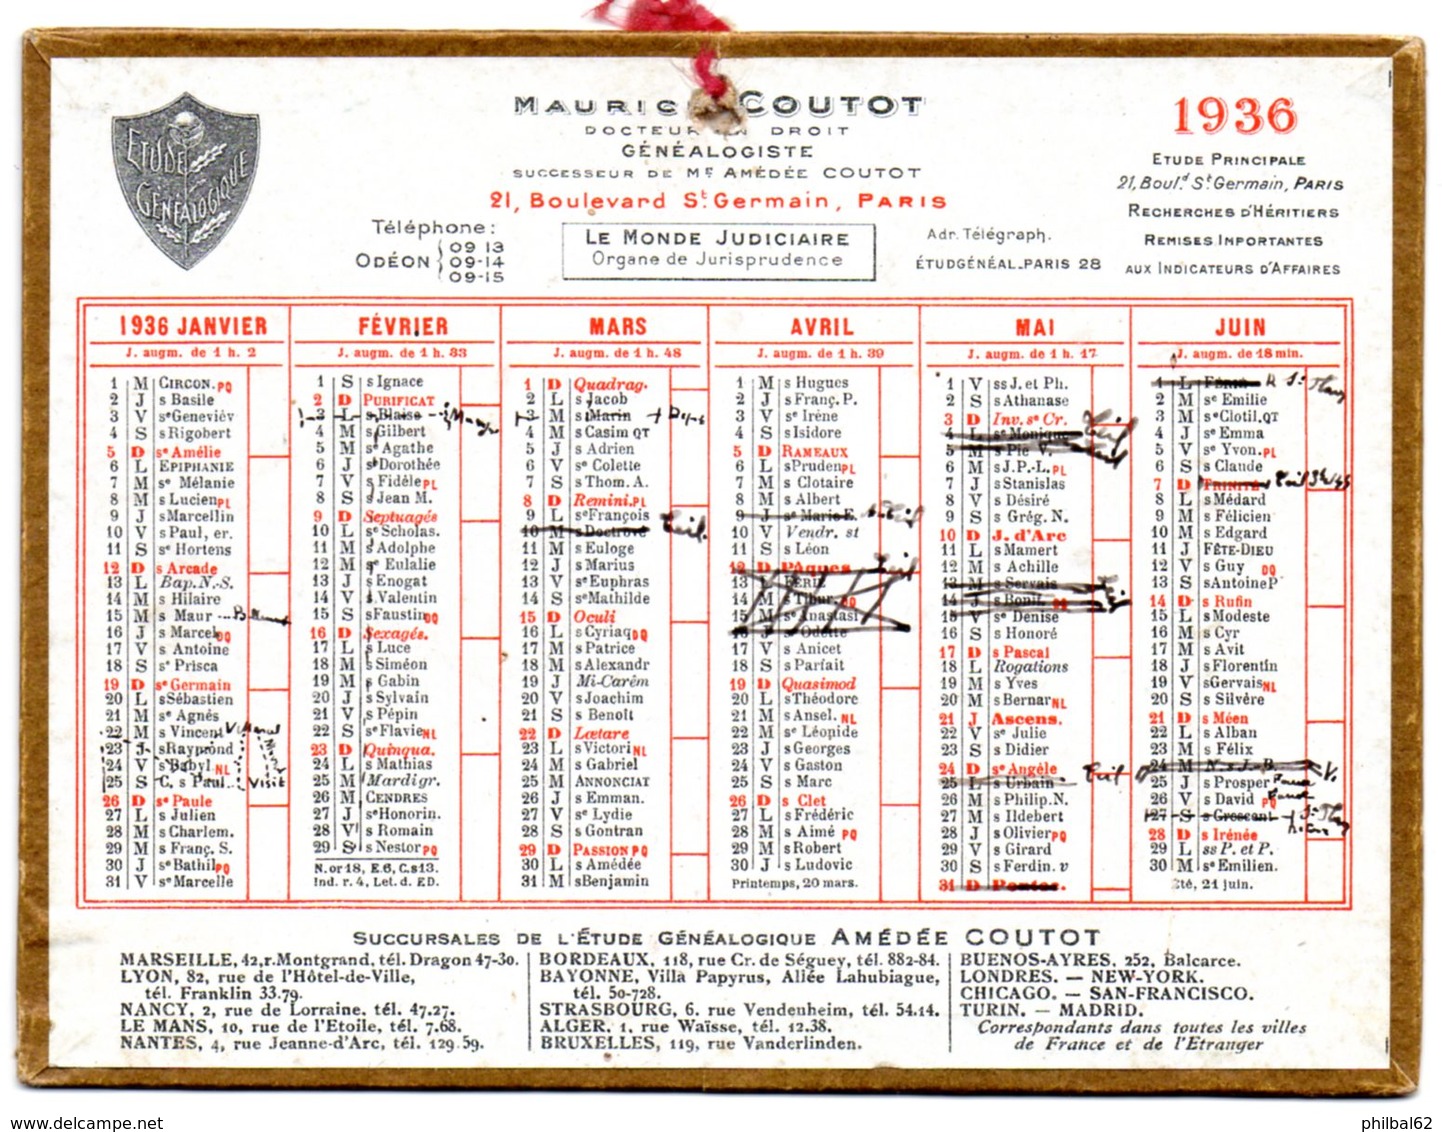 ETUDE
GÉNÉALOGIQUE
MAURICE COUTOT
DOCTEUR EN DROIT
GÉNÉALOGISTE
SUCCESSEUR DE Mᵉ AMÉDÉE COUTOT
21, Boulevard Sᵗ. Germain, PARIS
Téléphone :
ODÉON
09 13
09-14
09-15
LE MONDE JUDICIAIRE
Organe de Jurisprudence
Adr. Télégraph.
ÉTUDGÉNÉAL-PARIS 28
1936
ETUDE PRINCIPALE
21, Boul.ᵈ Sᵗ Germain, PARIS
RECHERCHES D'HÉRITIERS
REMISES IMPORTANTES
AUX INDICATEURS D'AFFAIRES
1936 JANVIER
J. augm. de 1 h. 2
1 M CIRCON. PQ
2 J s Basile
3 V sᵉ Geneviév
4 S s Rigobert
5 D sᵉ Amélie
6 L EPIPHANIE
7 M sᵉ Mélanie
8 M s Lucien PL
9 J s Marcellin
10 V s Paul, er.
11 S sᵉ Hortens
12 D s Arcade
13 L Bap. N.-S.
14 M s Hilaire
15 M s Maur
16 J s Marcel DQ
17 V s Antoine
18 S sᵉ Prisca
19 D sᵉ Germain
20 L s Sébastien
21 M sᵉ Agnés
22 M s Vincent
23 J s Raymond
24 V s Babyl NL
25 S C. s Paul Visit
26 D sᵉ Paule
27 L s Julien
28 M s Charlem.
29 M s Franç. S.
30 J sᵉ Bathil PQ
31 V sᵉ Marcelle
FÉVRIER
J. augm. de 1 h. 33
1 S s Ignace
2 D PURIFICAT
3 L s Blaise
4 M s Gilbert
5 M sᵉ Agathe
6 J sᵉ Dorothée
7 V s Fidéle PL
8 S s Jean M.
9 D Septuagés
10 L sᵉ Scholas.
11 M s Adolphe
12 M sᵉ Eulalie
13 J s Enogat
14 V s Valentin
15 S s Faustin DQ
16 D Sexagés.
17 L s Luce
18 M s Siméon
19 M s Gabin
20 J s Sylvain
21 V s Pépin
22 S sᵉ Flavie NL
23 D Quinqua.
24 L s Mathias
25 M Mardi gr.
26 M CENDRES
27 J sᵉ Honorin.
28 V s Romain
29 S s Nestor PQ
N. or 18, E. 6, C. s 13.
Ind. r. 4, Let. d. ED.
MARS
J. augm. de 1 h. 48
1 D Quadrag.
2 L s Jacob
3 M s Marin
4 M s Casim QT
5 J s Adrien
6 V sᵉ Colette
7 S s Thom. A.
8 D Remini. PL
9 L sᵉ François
10 M s Doctrové
11 M s Euloge
12 J s Marius
13 V sᵉ Euphras
14 S sᵉ Mathilde
15 D Oculi
16 L s Cyriaq DQ
17 M s Patrice
18 M s Alexandr
19 J Mi-Carêm
20 V s Joachim
21 S s Benoît
22 D Lætare
23 L s Victori NL
24 M s Gabriel
25 M ANNONCIAT
26 J s Emman.
27 V sᵉ Lydie
28 S s Gontran
29 D PASSION PQ
30 L s Amédée
31 M s Benjamin
AVRIL
J. augm. de 1 h. 39
1 M s Hugues
2 J s Franç. P.
3 V sᵉ Irène
4 S s Isidore
5 D RAMEAUX
6 L s Pruden PL
7 M s Clotaire
8 M s Albert
9 J sᵉ Marie E.
10 V Vendr. st
11 S s Léon
12 D Pâques
13 L FÉRIÉ
14 M s Tibur. DQ
15 M sᵉ Anastasi
16 J sᵉ Odette
17 V s Anicet
18 S s Parfait
19 D Quasimod
20 L s Théodore
21 M s Ansel. NL
22 M sᵉ Léopide
23 J s Georges
24 V s Gaston
25 S s Marc
26 D s Clet
27 L s Frédéric
28 M s Aimé PQ
29 M s Robert
30 J s Ludovic
Printemps, 20 mars.
MAI
J. augm. de 1 h. 17
1 V ss J. et Ph.
2 S s Athanase
3 D Inv. sᵉ Cr.
4 L sᵉ Monique
5 M s Pie V.
6 M s J.P.-L. PL
7 J s Stanislas
8 V s Désiré
9 S s Grég. N.
10 D J. d'Arc
11 L s Mamert
12 M s Achille
13 M s Servais
14 J s Bonif.
15 V sᵉ Denise
16 S s Honoré
17 D s Pascal
18 L Rogations
19 M s Yves
20 M s Bernar NL
21 J Ascens.
22 V sᵉ Julie
23 S s Didier
24 D sᵉ Angéle
25 L s Urbain
26 M s Philip. N.
27 M s Ildebert
28 J s Olivier PQ
29 V s Girard
30 S s Ferdin. v
31 D Pentec.
JUIN
J. augm. de 18 min.
1 L FÉRIÉ
2 M sᵉ Emilie
3 M sᵉ Clotil. QT
4 J sᵉ Emma
5 V sᵉ Yvon. PL
6 S s Claude
7 D TRINITÉ
8 L s Médard
9 M s Félicien
10 M s Edgard
11 J FÊTE-DIEU
12 V s Guy DQ
13 S s Antoine P
14 D s Rufin
15 L s Modeste
16 M s Cyr
17 M s Avit
18 J s Florentin
19 V s Gervais NL
20 S s Silvère
21 D s Méen
22 L s Alban
23 M s Félix
24 M N. s J.-B.
25 J s Prosper
26 V s David PQ
27 S s Crescent
28 D s Irénée
29 L ss P. et P.
30 M sᵉ Emilien.
Eté, 21 juin.
SUCCURSALES DE L'ÉTUDE GÉNÉALOGIQUE AMÉDÉE COUTOT
MARSEILLE, 42, r. Montgrand, tél. Dragon 47-30.
LYON, 82, rue de l'Hôtel-de-Ville,
tél. Franklin 33.79.
NANCY, 2, rue de Lorraine, tél. 47.27.
LE MANS, 10, rue de l'Etoile, tél. 7.68.
NANTES, 4, rue Jeanne-d'Arc, tél. 129.59.
BORDEAUX, 118, rue Cr. de Séguey, tél. 882-84.
BAYONNE, Villa Papyrus, Allée Lahubiague,
tél. 50-728.
STRASBOURG, 6. rue Vendenheim, tél. 54.14.
ALGER, 1, rue Waïsse, tél. 12.38.
BRUXELLES, 119, rue Vanderlinden.
BUENOS-AYRES. 252, Balcarce.
LONDRES. — NEW-YORK.
CHICAGO. — SAN-FRANCISCO.
TURIN. — MADRID.
Correspondants dans toutes les villes
de France et de l'Etranger
www.delcampe.net
philbal62